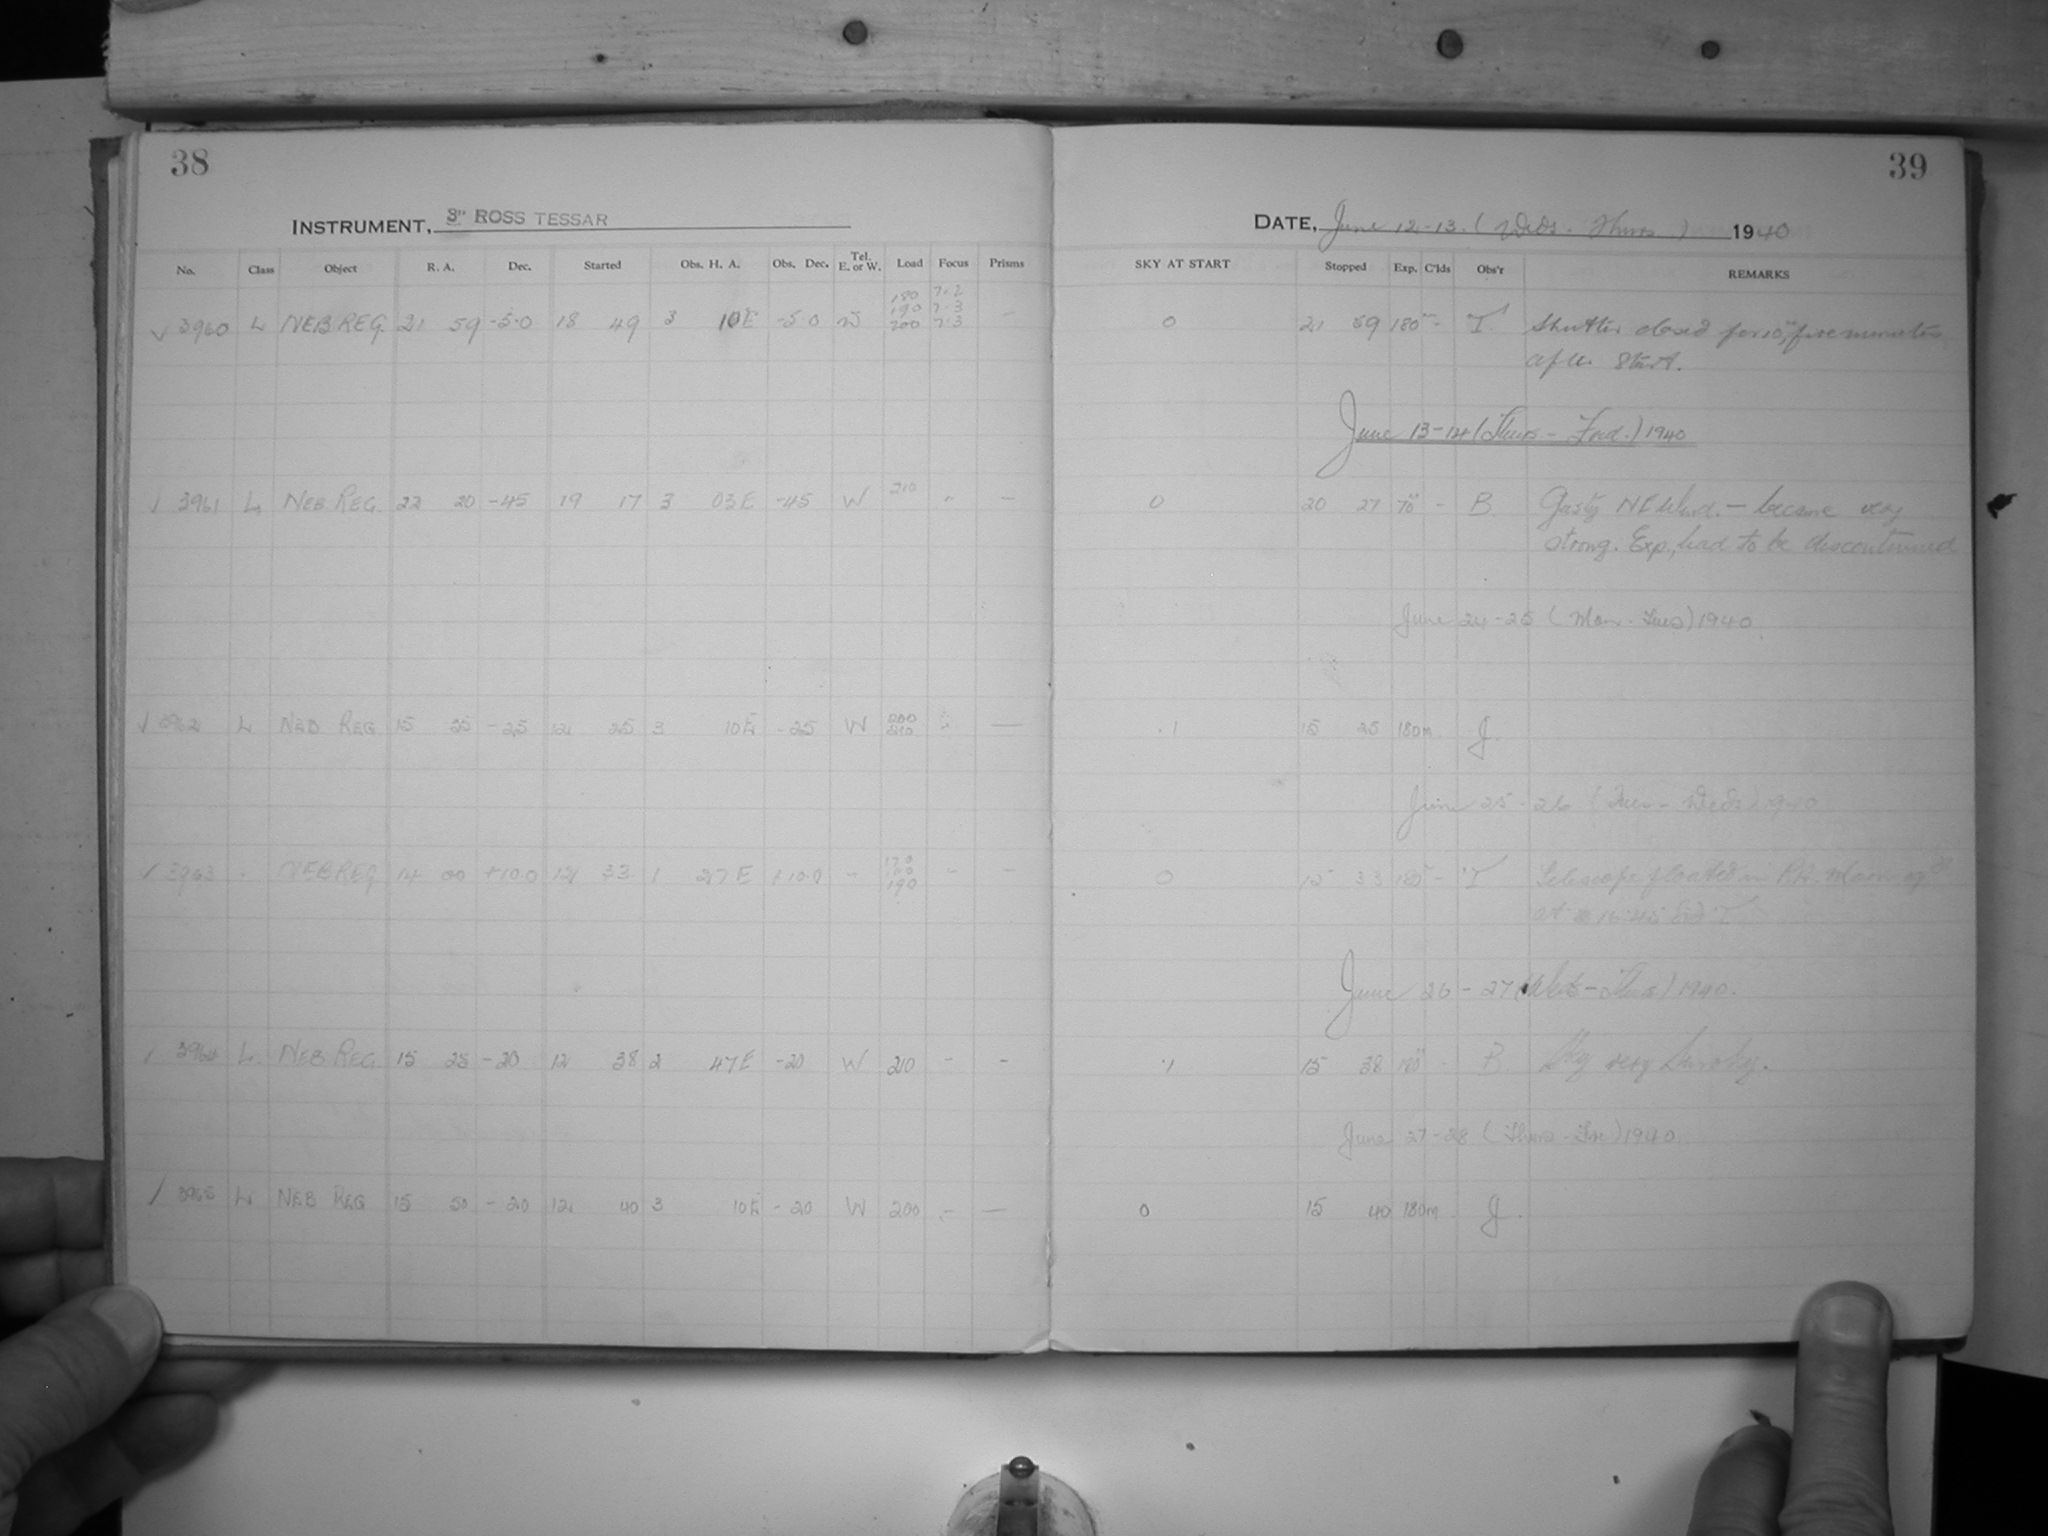 38
INSTRUMENT, 3" ROSS TESSAR
No. Class Object R. A. Dec. Started Obs. H. A. Obs. Dec. Tel. E. or W. Load Focus Prisms
180 7.2
190 7.3
✓ 3960 L NEB REG. 21 59 -5.0 18 49 3 10E -5.0 W 200 7.3 -
210
/ 3961 L NEB REG. 22 20 -45 19 17 3 03E -45 W " -
200
✓ 3962 L NEB REG 15 35 -25 12 25 3 10E -25 W 210 —
170
/ 3963 - NEB REG 14 00 +10.0 12 33 1 27E +10.0 - 190 - -
/ 3964 L. NEB REG. 15 25 -20 12 38 2 47E -20 W 210 - -
/ 3965 L NEB REG 15 50 -20 12 40 3 10E -20 W 200 - —
39
DATE, June 12-13. (Weds. - Thurs) 1940
SKY AT START Stopped Exp. C'lds Obs'r REMARKS
0 21 59 180m - T Shutter closed for 10s, five minutes
after start.
June 13-14 (Thurs - Frid.) 1940
0 20 27 70m - B. Gusty NE Wind. — became very
strong. Exp., had to be discontinued
June 24-25 (Mon - Tues) 1940.
.1 15 25 180m J.
June 25-26 (Tues - Weds) 1940
0 15 33 180m - T Telescope floated in RA. Moon up
at 16.45
June 26-27 (Weds - Thurs) 1940.
.1 15 38 180m - B. Sky very smoky.
June 27-28 (Thurs - Fri) 1940.
0 15 40 180m J.